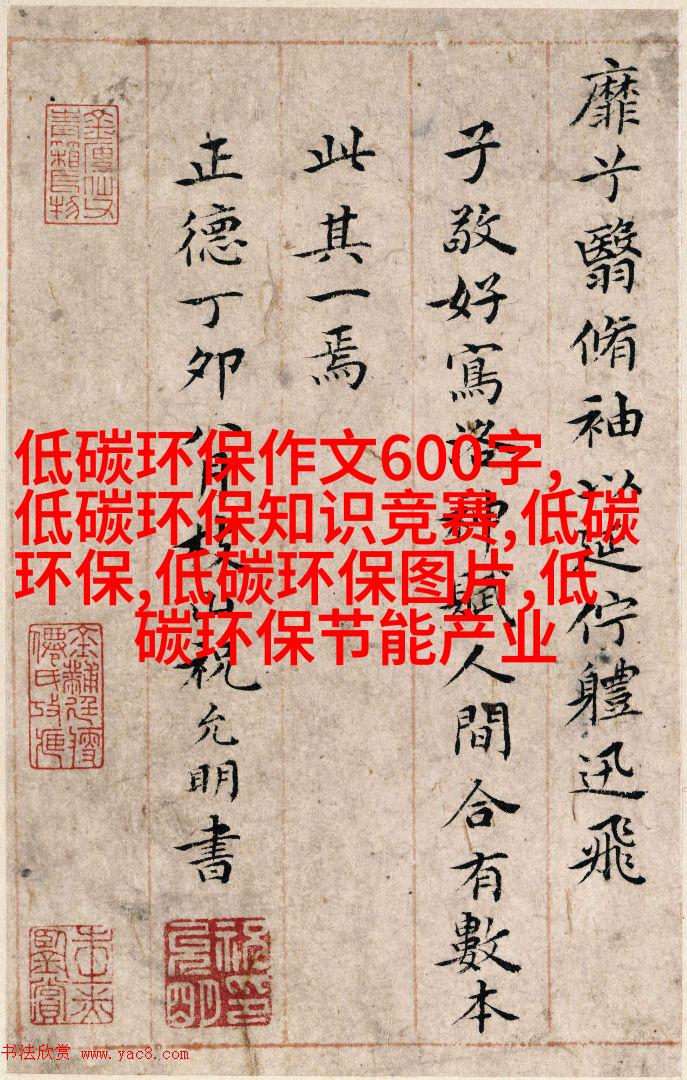 靡兮翳脩袖以延佇體迅飛
子敬好寫洛神賦人間合有數本
此其一焉
正德丁卯八月枝山祝允明書
低碳环保作文600字,
低碳环保知识竞赛,低碳
环保,低碳环保图片,低
碳环保节能产业
书法欣赏 www.yac8.com